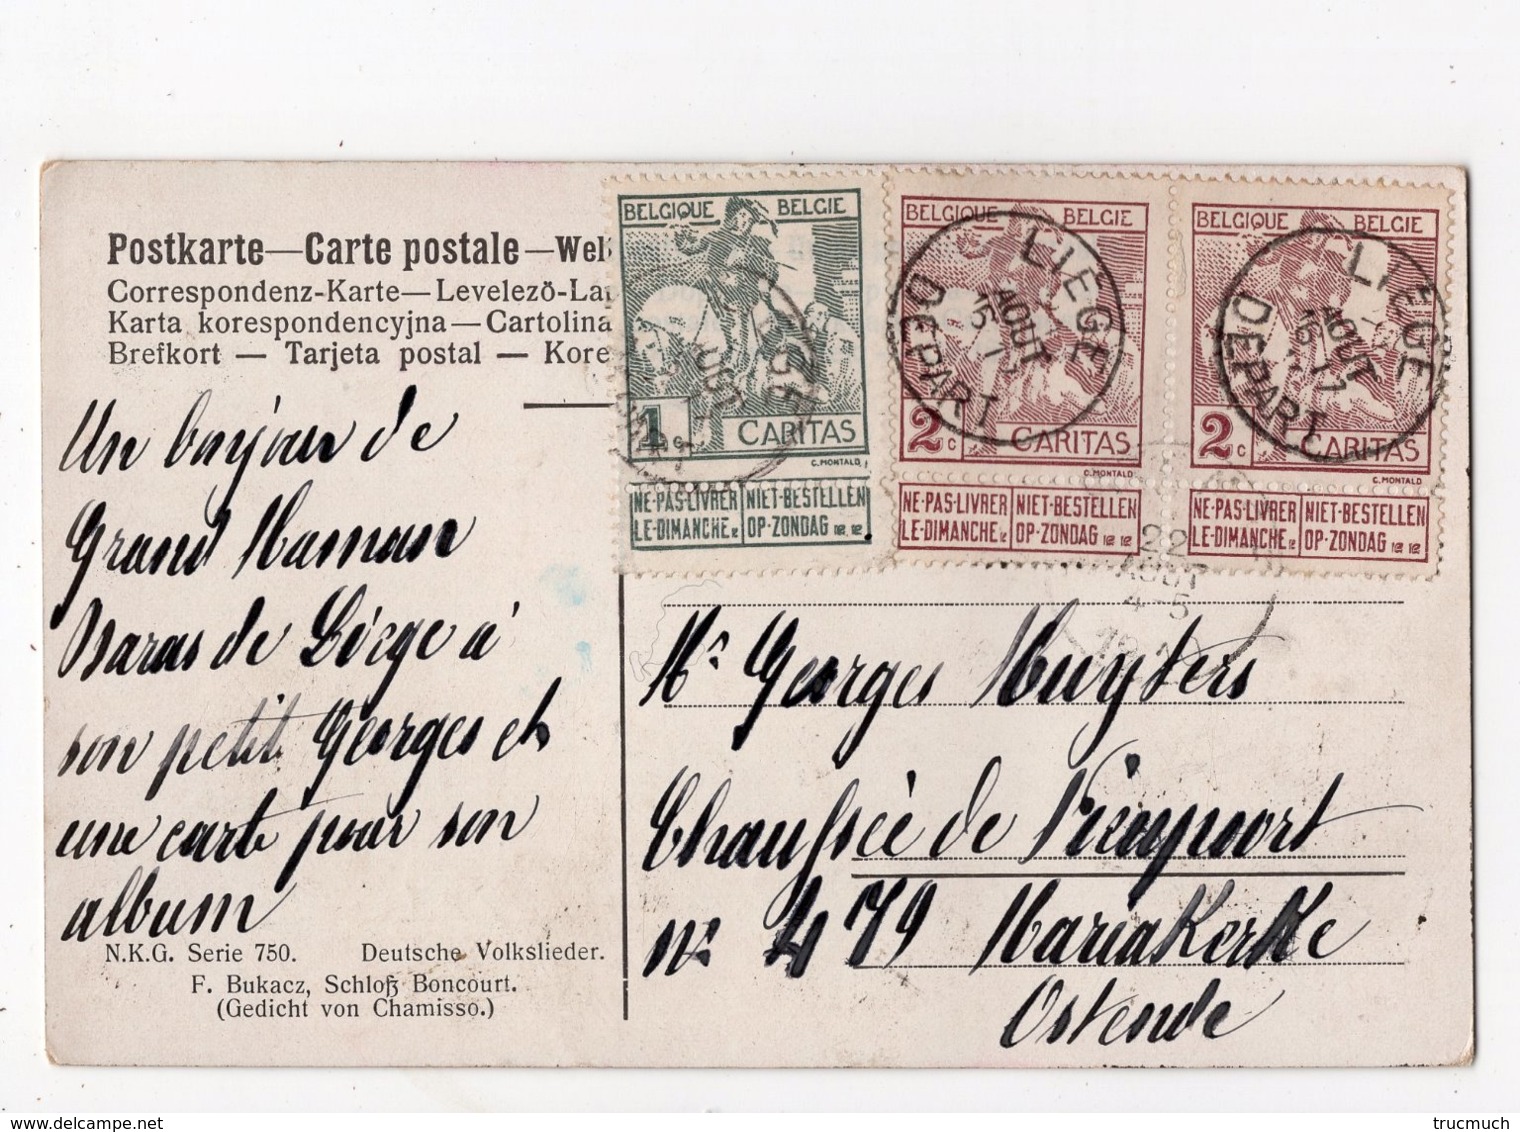 Postkarte—Carte postale—Wel
Correspondenz-Karte—Levelezö-La
Karta korespondencyjna—Cartolina
Brefkort — Tarjeta postal — Kore
BELGIQUE BELGIE
1c CARITAS
C. MONTALD.
NE-PAS-LIVRER NIET-BESTELLEN
LE-DIMANCHE OP-ZONDAG
BELGIQUE BELGIE
2c CARITAS
C. MONTALD
NE-PAS-LIVRER NIET-BESTELLEN
LE-DIMANCHE OP-ZONDAG
BELGIQUE BELGIE
2c CARITAS
C. MONTALD
NE-PAS-LIVRER NIET-BESTELLEN
LE-DIMANCHE OP-ZONDAG
LIÈGE
AOUT
DEPART
LIÈGE
AOUT
DEPART
22
AOUT
4-5
Un bonjour de
Grand Maman
Baras de Liège à
son petit Georges et
une carte pour son
album
N.K.G. Serie 750. Deutsche Volkslieder.
F. Bukacz, Schloß Boncourt.
(Gedicht von Chamisso.)
Mr Georges Muyters
Chaussée de Nieuport
No 479 Mariakerke
Ostende
delcampe.net
trucmuch